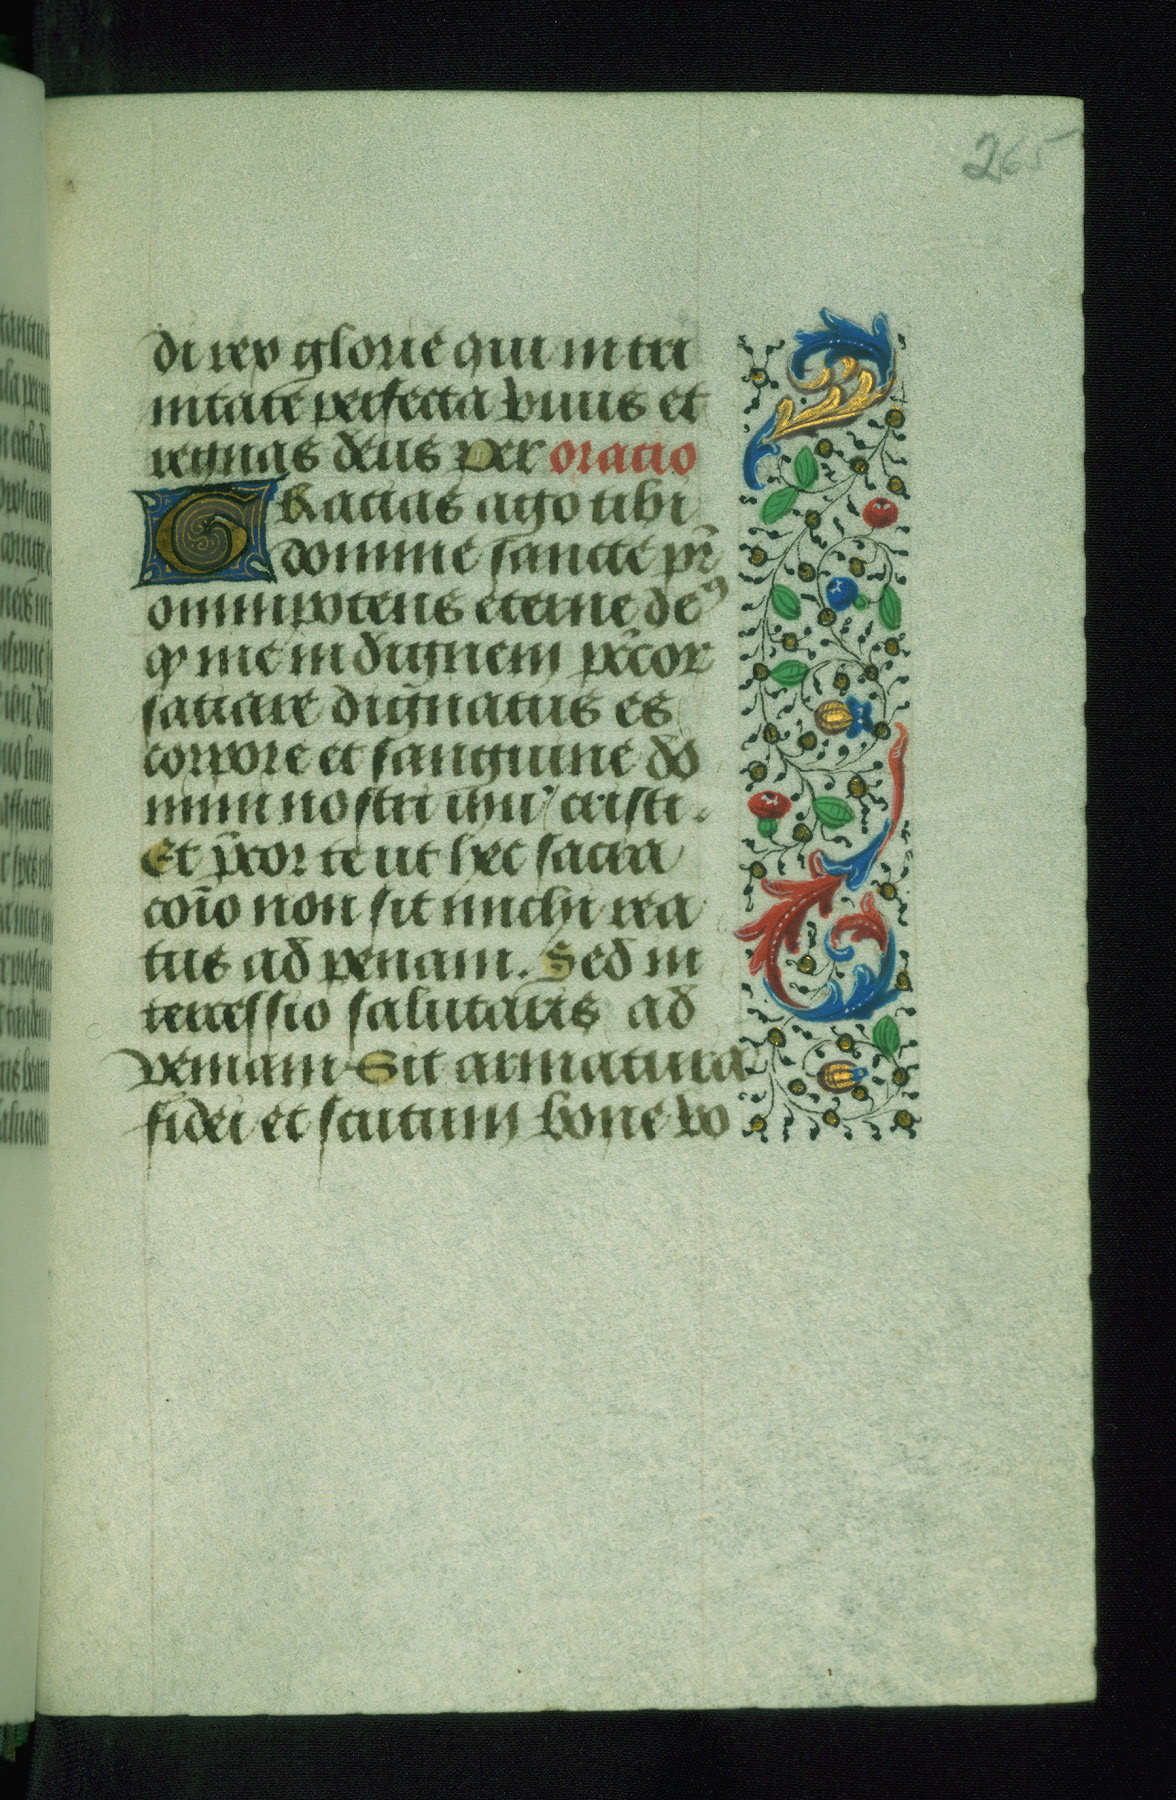 265
di rex glorie qui in tri
nitate perfecta vivis et
regnas deus per oratio
Gracias ago tibi
domine sancte pr̃
omnipotens eterne de⁹
qͥ me indignem peccor
satiare dignatus es
corpore et sanguine do
mini nostri ihũ cristi.
Et p̃cor te ut hec sacra
coĩo non sit michi rea
tus ad penam. Sed in
tercessio salutaris ad
veniam Sit armatura
fidei et scutum bone vo